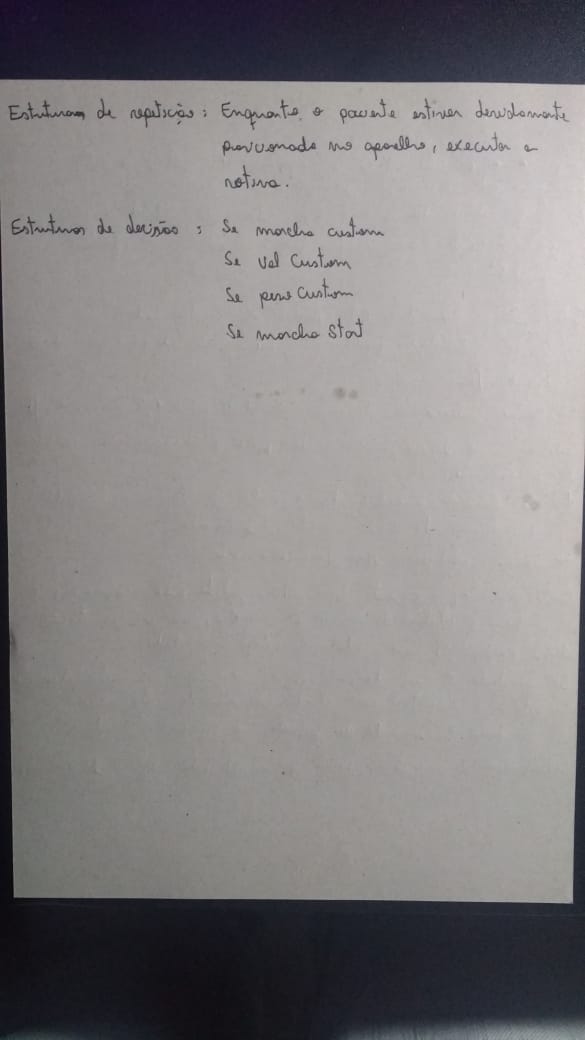 Estruturas de repetição: Enquanto o paciente estiver devidamente
posicionado no aparelho, executar a
rotina.
Estruturas de decisão: Se marcha custom
Se vel Custom
Se peso Custom
Se marcha Stat